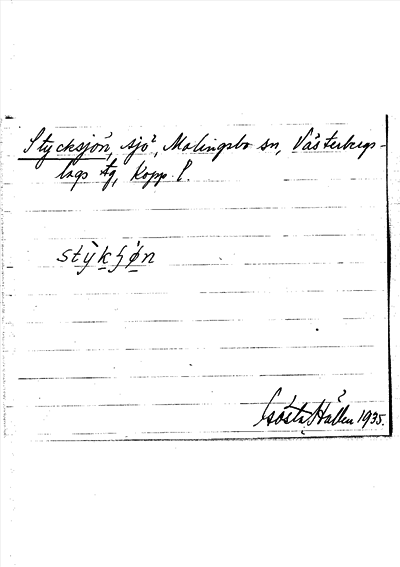 Stycksjön, sjö, Malingsbo sn, Västerbergs-
lags tg, Kopp. l.
stỳkʃø̀n
Gösta Hallén 1935.